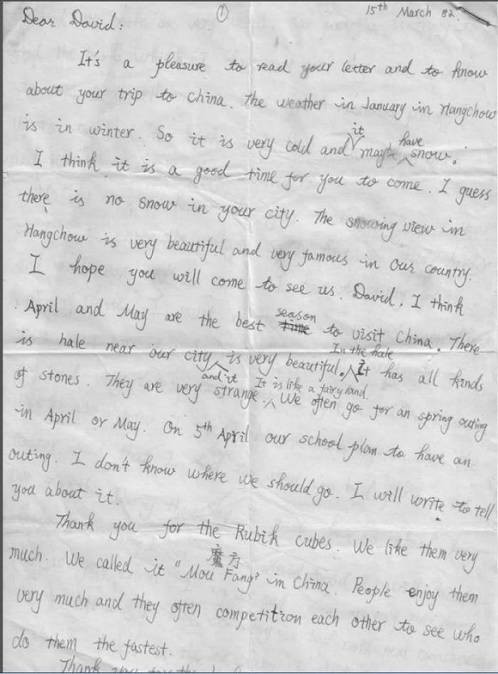 ①
15th March 82.
Dear David:
It's a pleasure to read your letter and to know
about your trip to China. The weather in January in Hangchow
is in winter. So it is very cold and it maybe have snow.
I think it is a good time for you to come. I guess
there is no snow in your city. The snowing view in
Hangchow is very beautiful and very famous in our country.
I hope you will come to see us. David, I think
April and May are the best season to visit China. There
is hale near our city and it is very beautiful. In the hale It has all kinds
of stones. They are very strange. It is like a fairy land. We often go for an spring outing
in April or May. On 5th April our school plan to have an
outing. I don't know where we should go. I will write to tell
you about it.
Thank you for the Rubik cubes. We like them very
much. We called it "Mou Fang" 魔方 in China. People enjoy them
very much and they often competition each other to see who
do them the fastest.
Thank you